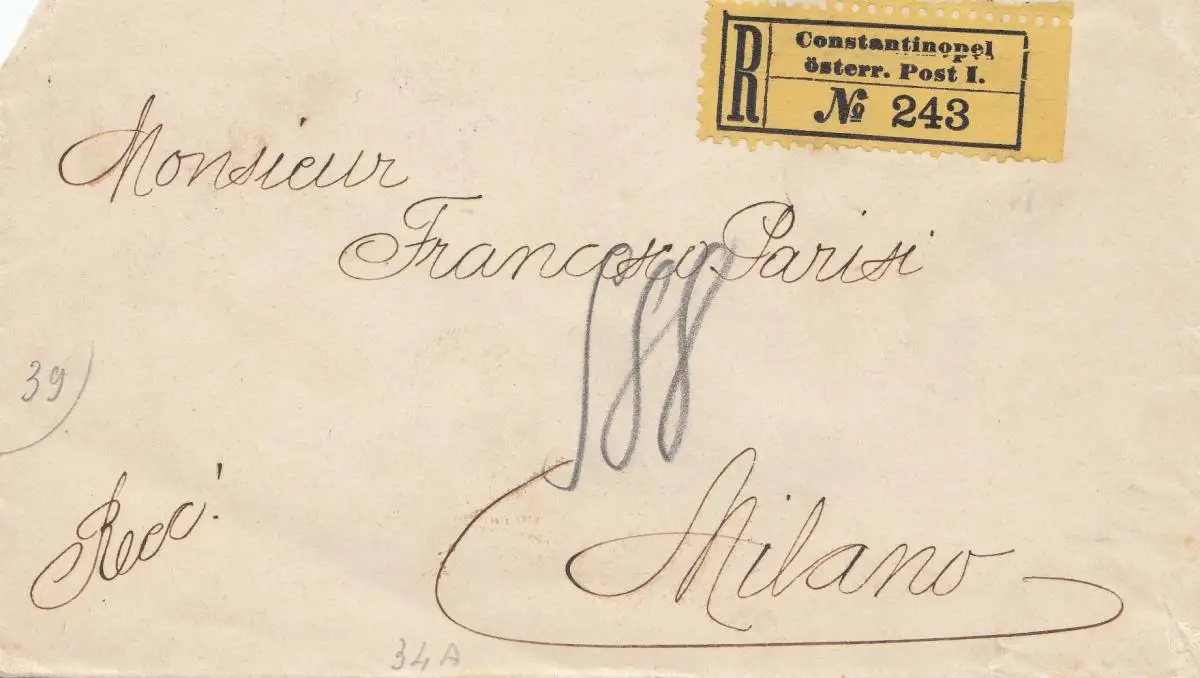 R
Constantinopel
österr. Post I.
№ 243
Monsieur
Francesco Parisi
188
39
Milano
Recc!
34A